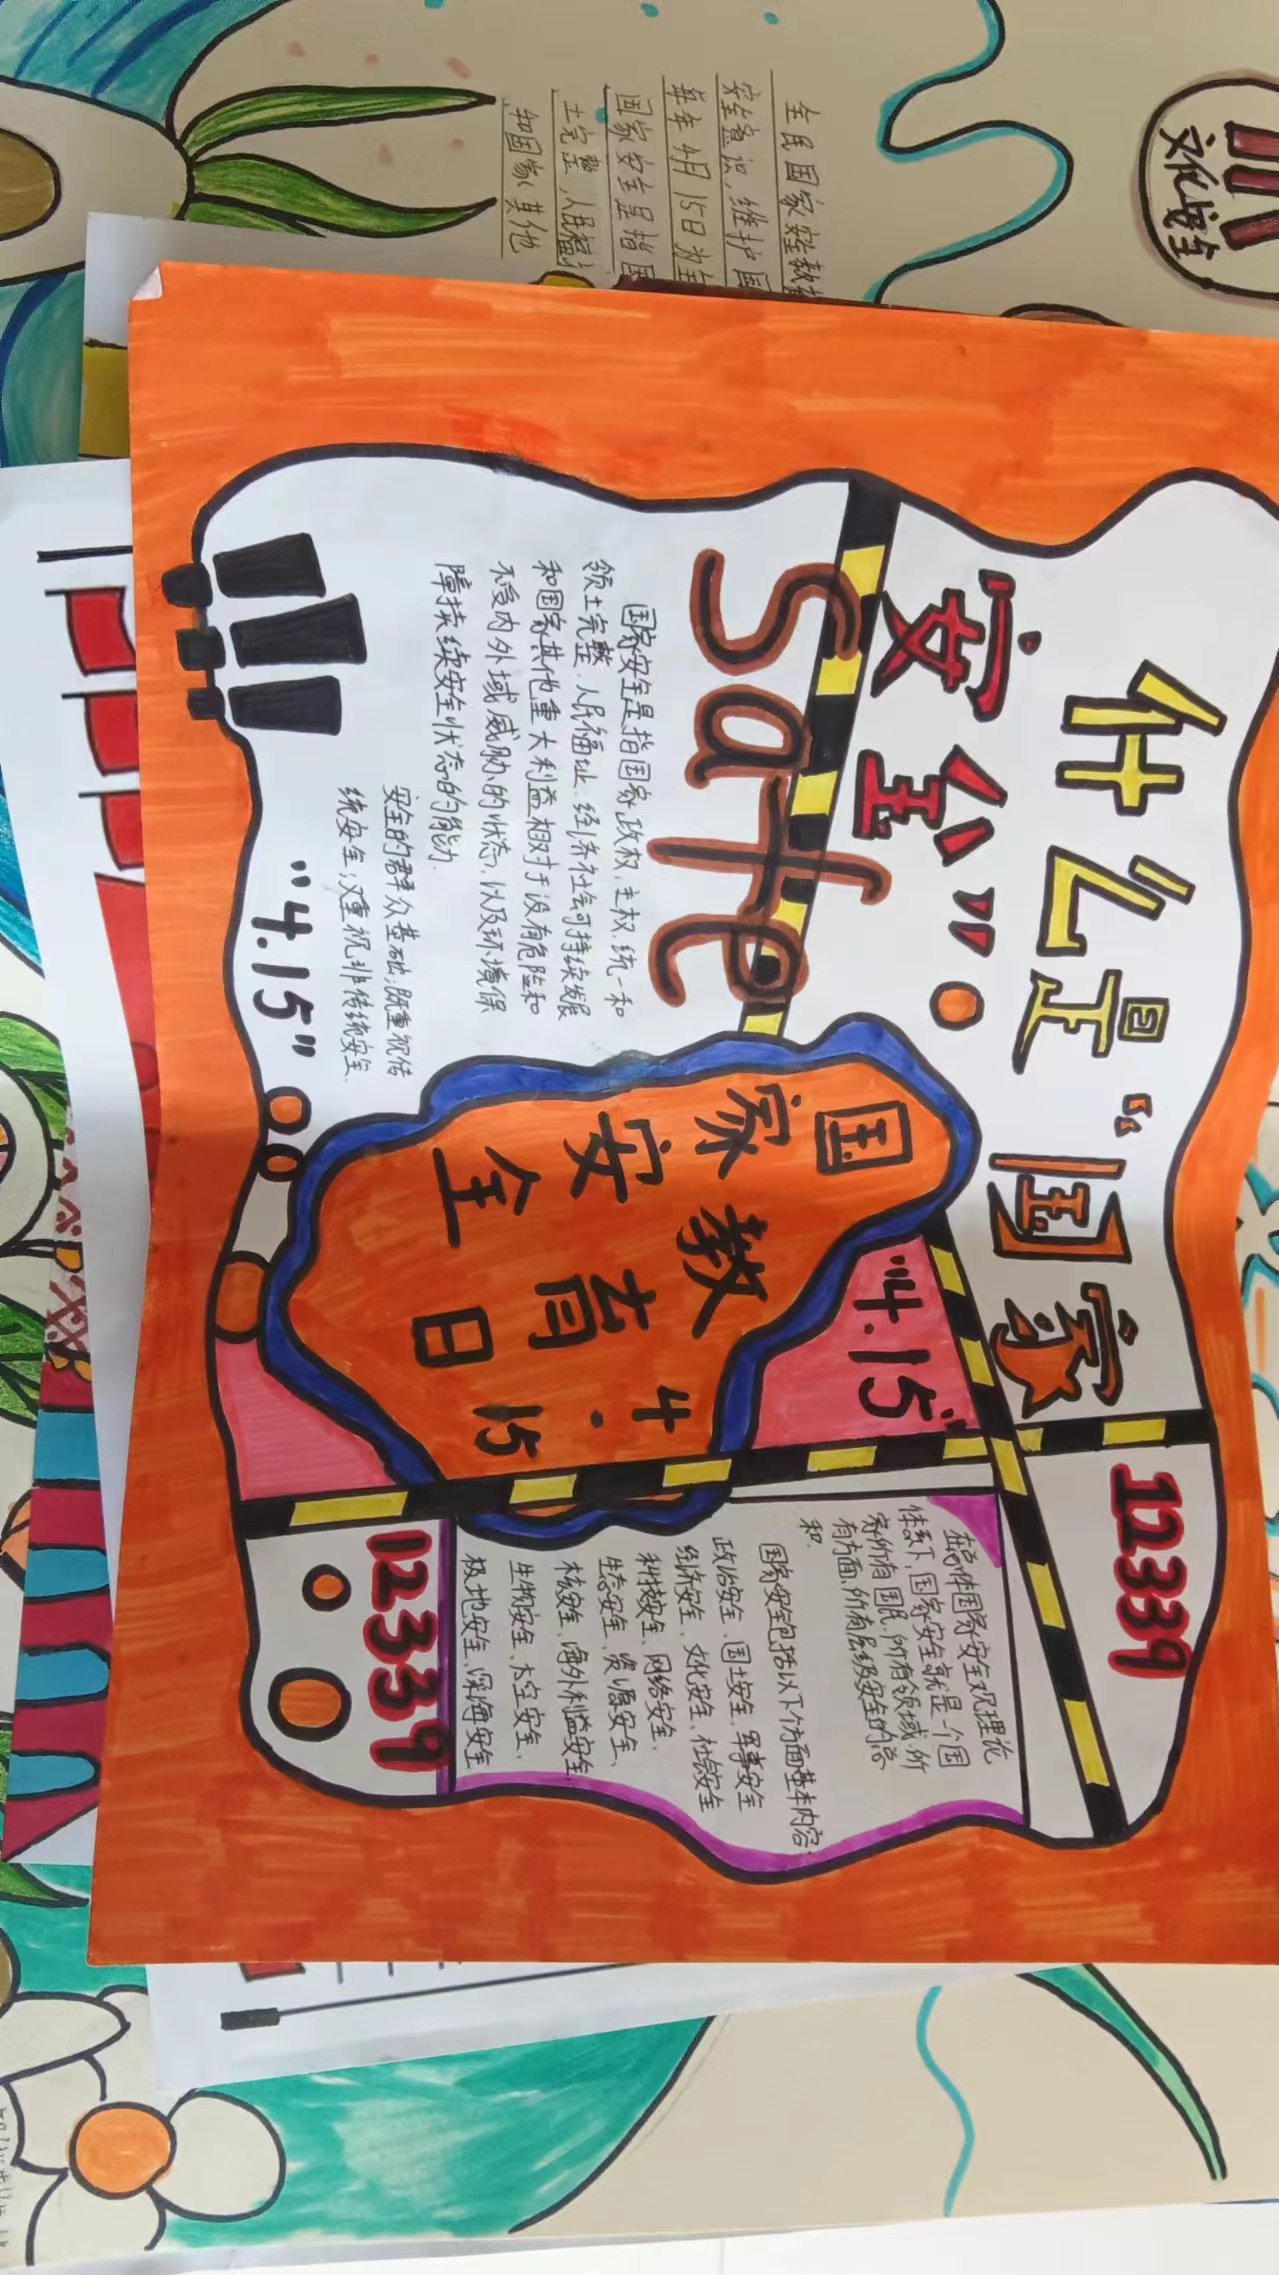 什么是“国家
安全”。
12339
safe
国家安全是指国家政权、主权、统一和
领土完整、人民福祉、经济社会可持续发展
和国家其他重大利益相对于没有危险和
不受内外域威胁的状态,以及环境保
障持续安全状态的能力.
安全的群众基础;既重视传
统安全;又重视非传统安全.
"4.15"
"4.15"
国家安全
教育日
4.15
在总体国家安全观理论
体系下,国家安全就是一个国
家所有国民、所有领域、所
有方面、所有层级安全的总
和.
国家安全包括以下个方面基本内容:
政治安全、国土安全、军事安全
经济安全、文化安全、社会安全
科技安全、网络安全、
生态安全、资源安全、
核安全、海外利益安全、
生物安全、太空安全、
极地安全、深海安全
12339
文化安全
全民国家安全教
安全意识,维护国
每年4月15日为全
国家安全是指国
土完整,人民福
和国家其他